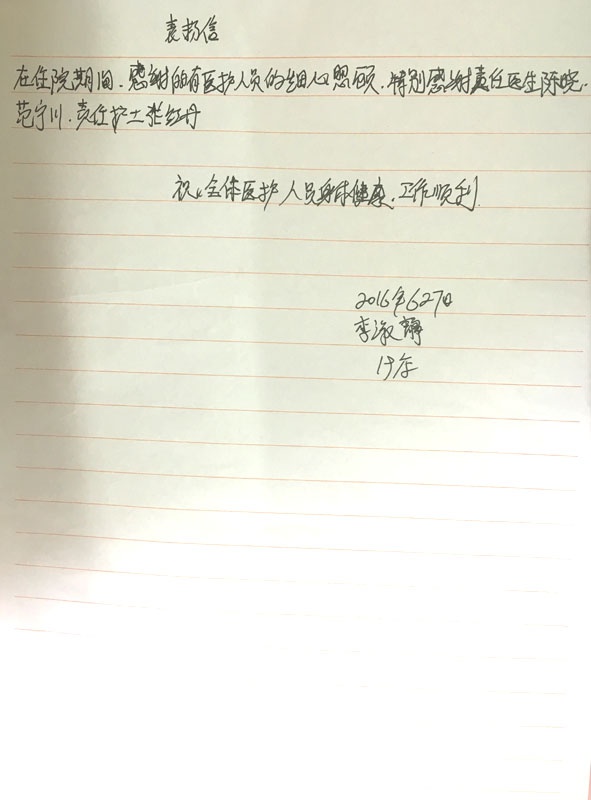 表扬信
在住院期间.感谢所有医护人员的细心照顾.特别感谢责任医生陈晓.
范宁川.责任护士张红丹
祝:全体医护人员身体健康.工作顺利.
2016年627日
李淑静